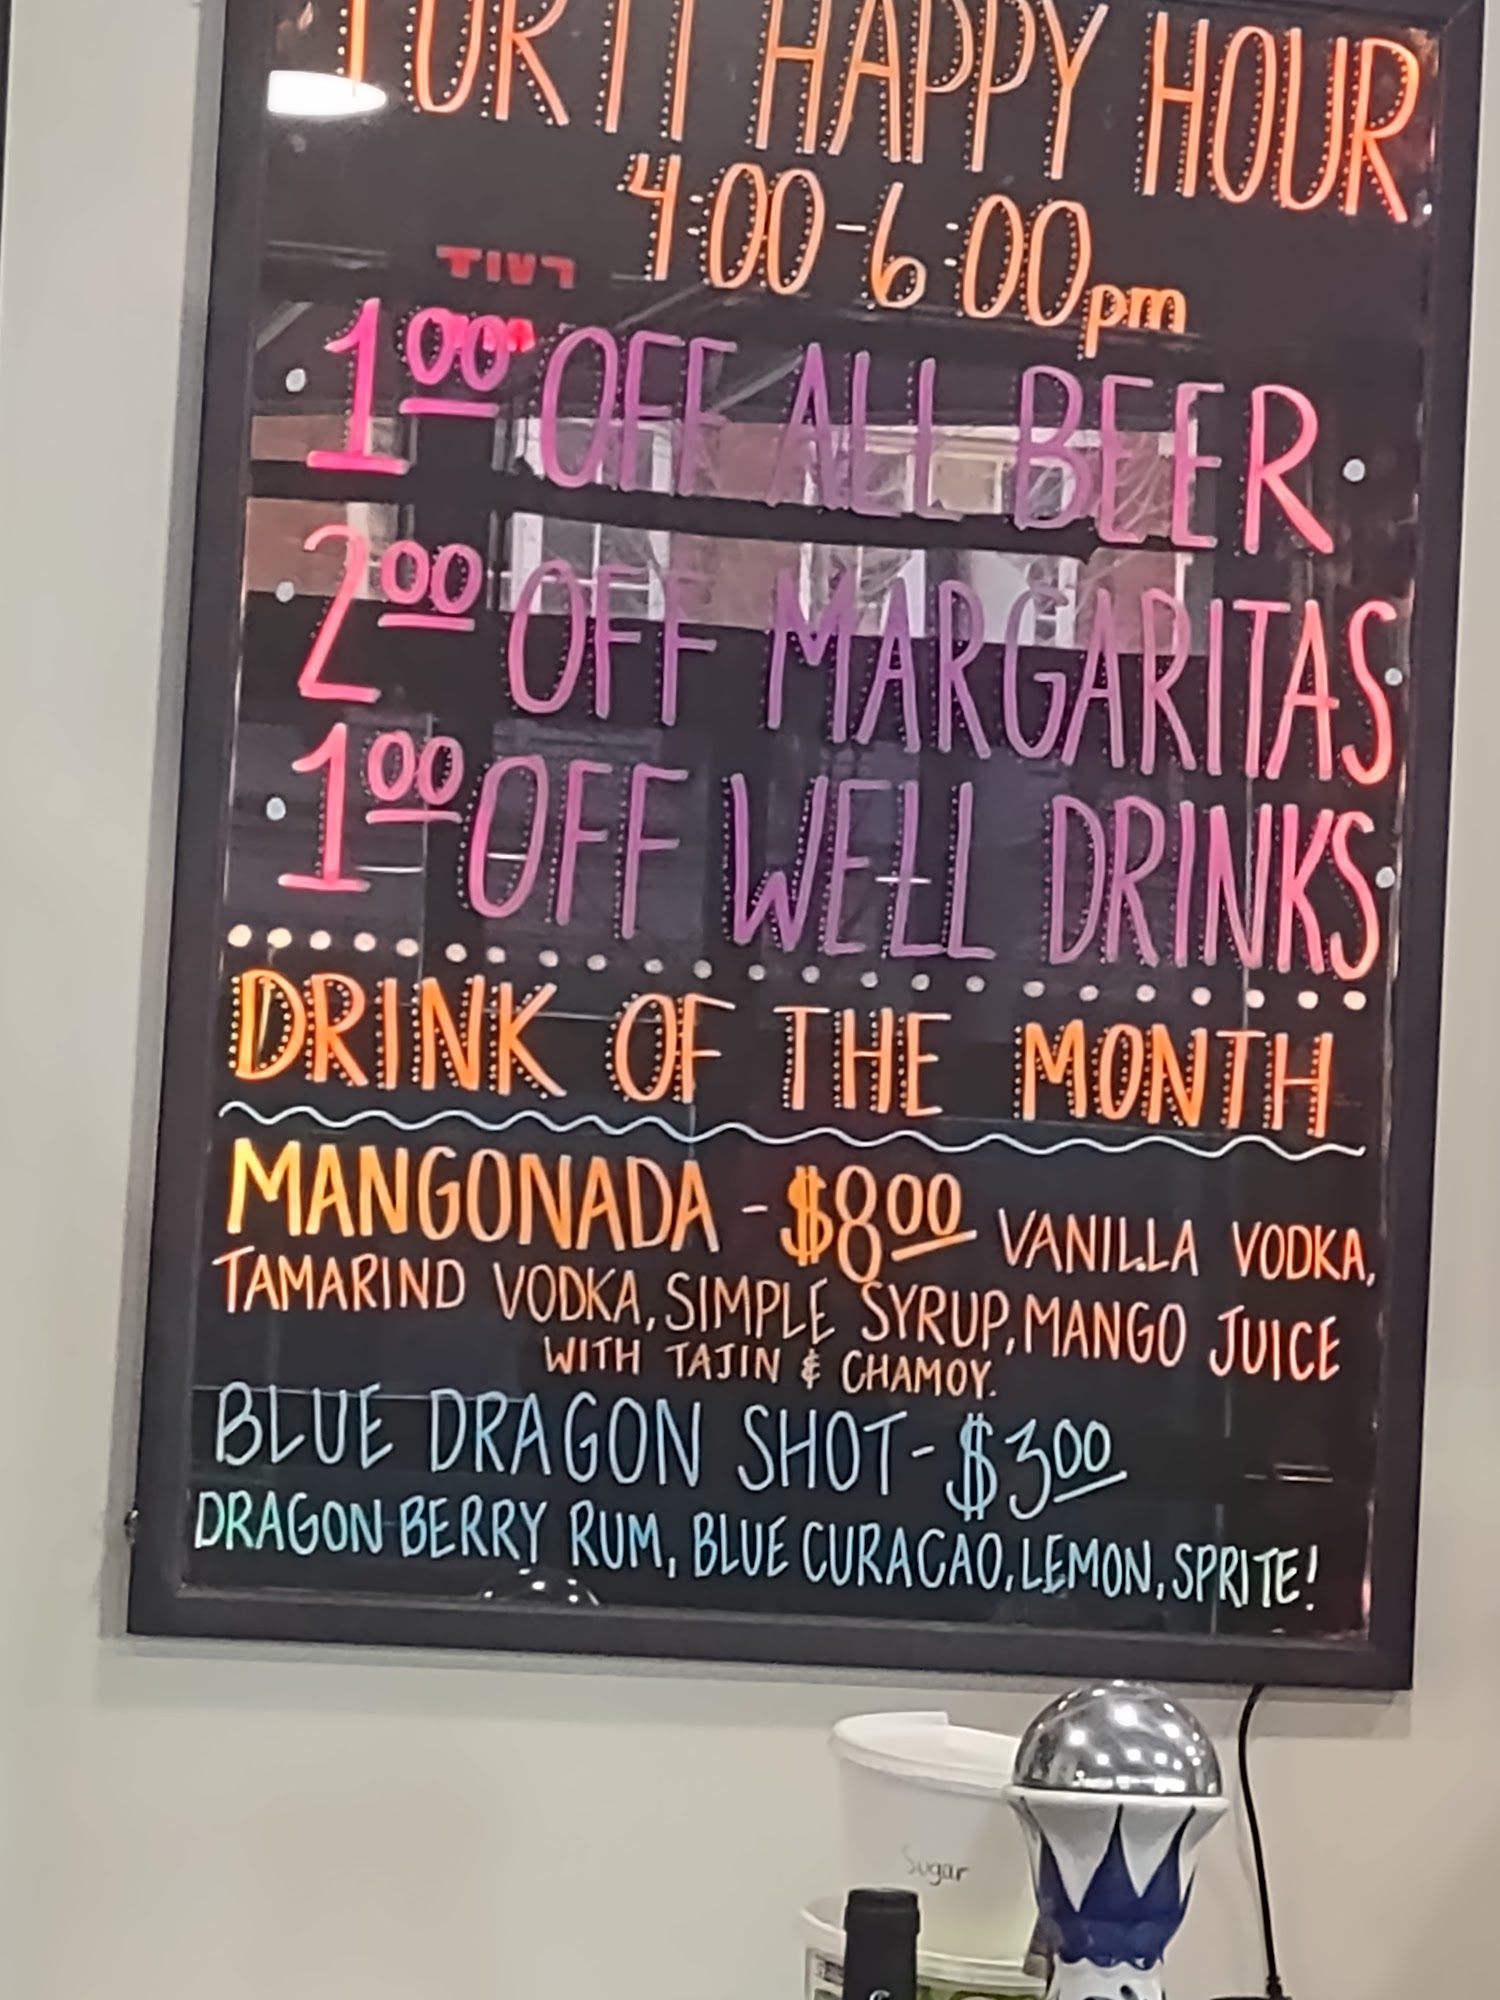 TORTI HAPPY HOUR
4:00-6:00pm
• 1.00 OFF ALL BEER •
• 2.00 OFF MARGARITAS •
• 1.00 OFF WELL DRINKS •
DRINK OF THE MONTH
MANGONADA - $8.00 VANILLA VODKA,
TAMARIND VODKA, SIMPLE SYRUP, MANGO JUICE
WITH TAJIN & CHAMOY.
BLUE DRAGON SHOT - $3.00
DRAGON BERRY RUM, BLUE CURACAO, LEMON, SPRITE!
Sugar